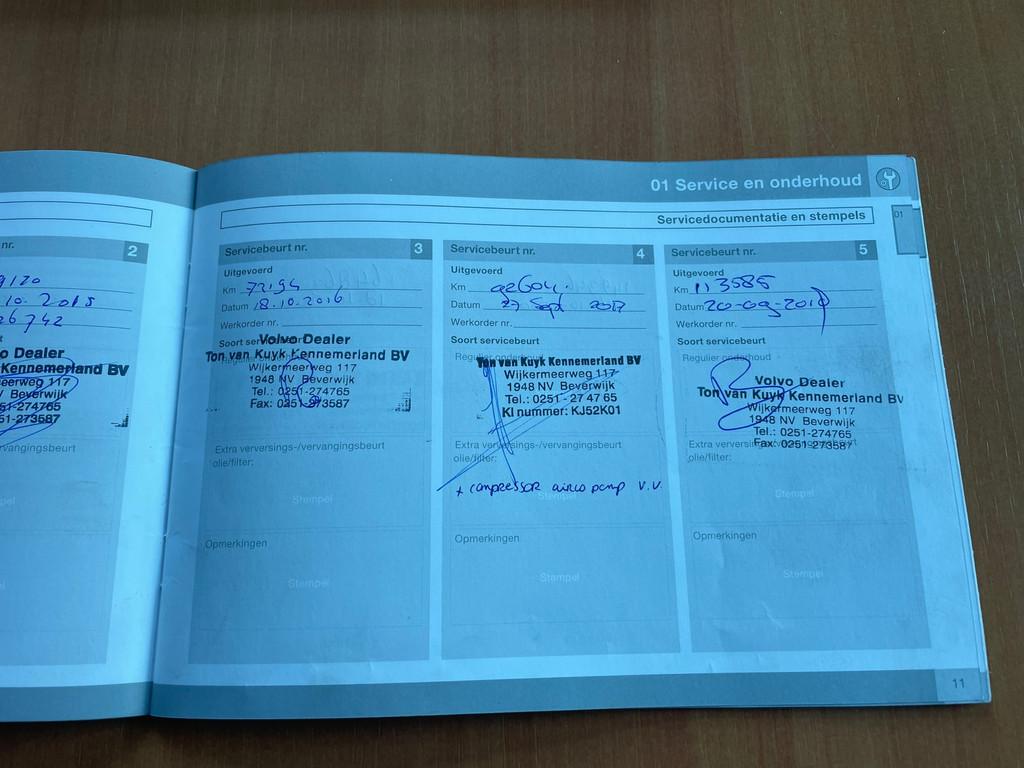 01 Service en onderhoud
Servicedocumentatie en stempels
01
nr. 2
9120
10. 2015
26742
o Dealer
Kennemerland BV
meerweg 117
V Beverwijk
51-274765
51-273587
vervangingsbeurt
Servicebeurt nr. 3
Uitgevoerd
Km 72194
Datum 18.10.2016
Werkorder nr.
Soort servicebeurt
Volvo Dealer
Ton van Kuyk Kennemerland BV
Wijkermeerweg 117
1948 NV Beverwijk
Tel.: 0251-274765
Fax: 0251-273587
Extra verversings-/vervangingsbeurt
olie/filter:
Stempel
Opmerkingen
Stempel
Servicebeurt nr. 4
Uitgevoerd
Km 92604.
Datum 27 Sept 2017
Werkorder nr.
Soort servicebeurt
Regulier onderhoud
Ton van Kuyk Kennemerland BV
Wijkermeerweg 117
1948 NV Beverwijk
Tel.: 0251 - 27 47 65
KI nummer: KJ52K01
Extra verversings-/vervangingsbeurt
olie/filter:
+ compressor airco pomp v.v.
Stempel
Opmerkingen
Stempel
Servicebeurt nr. 5
Uitgevoerd
Km 113585
Datum 20-09-2018
Werkorder nr.
Soort servicebeurt
Regulier onderhoud
Volvo Dealer
Ton van Kuyk Kennemerland BV
Wijkermeerweg 117
1948 NV Beverwijk
Tel.: 0251-274765
Fax: 0251-273587
Extra
olie/filter:
Stempel
Opmerkingen
Stempel
11